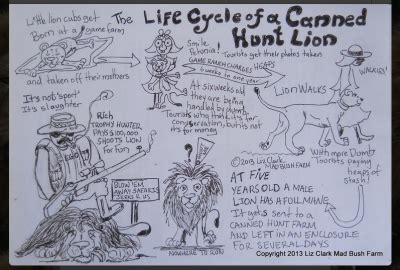 The Life Cycle of a Canned
Hunt Lion
Little lion cubs get
Born at a game farm
and taken off their mothers
Smile
Petunia!
Tourists get their photos taken
GAME RANCH CHARGES HEAPS
6 weeks to one year
At six weeks old
they are being
handled by dumb
Tourists who think it's for
conservation, but its not
it's for money
WALKIES!
LION WALKS
With more Dumb
Tourists paying
heaps of
stash!
©2013 Liz Clark
MAD BUSH FARM
AT FIVE
YEARS OLD A MALE
LION HAS A FULL MANE
It gets sent to a
CANNED HUNT FARM
AND LEFT IN AN ENCLOSURE
FOR SEVERAL DAYS
NOWHERE TO RUN
It's not sport
It's slaughter
Rich
TROPHY HUNTER
PAYS $100,000
SHOOTS LION
For fun
BLOW 'EM
AWAY SAFARIS
JERKS R US
Copyright 2013 Liz Clark Mad Bush Farm